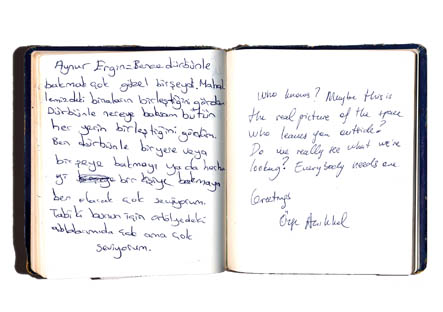 Aynur Ergin = Bence dürbünle
bakmak çok güzel birşeydi. Mahal
lemizdeki binaların birleştiğini gördüm
Dürbünle nereye baksam bütün
her yerin birleştiğini gördüm.
Ben dürbünle bir yere veya
bir şeye bakmayı ya da herhan
gi bir kişiye bakmayı
ben olarak çok seviyorum.
Tabiki bunun için atölyedeki
ablalarımıda çok ama çok
seviyorum.
Who knows? Maybe this is
the real picture of the space
who leaves you outside?
Do we really see what we're
looking? Everybody needs one
Greetings
Özge